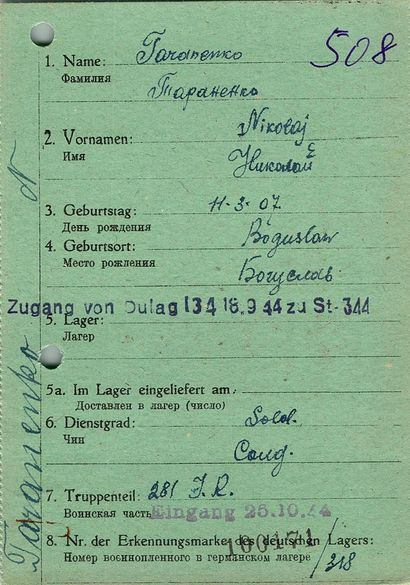 508
1. Name: Taranenko
Фамилия Тараненко
2. Vornamen: Nikolaj
Имя Николай
3. Geburtstag: 11-3-07
День рождения
4. Geburtsort: Boguslaw
Место рождения Богуслав
Zugang von Dulag 134 18.9 44 zu St-344
5. Lager:
Лагер
5a. Im Lager eingeliefert am
Доставлен в лагер (число)
6. Dienstgrad: Sold.
Чин Солд.
7. Truppenteil: 281 J.R.
Воинская часть
Eingang 25.10.44
8. Nr. der Erkennungsmarke des deutschen Lagers:
Номер военнопленного в германском лагере
100171
/318
Taranenko N